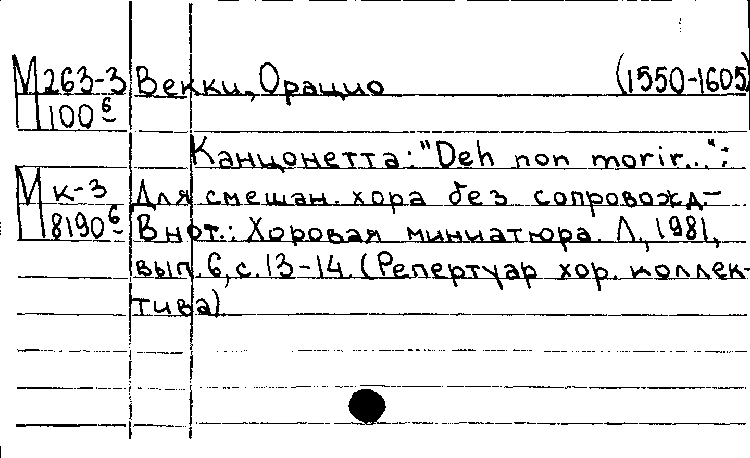 М 263-3 Векки, Орацио (1550-1605)
100 6
Канцонетта: "Deh non morir...":
М к-3 Для смешан. хора без сопровожд.-
8190 6 В нот.: Хоровая миниатюра. Л., 1981,
вып. 6, с. 13-14. (Репертуар хор. коллек-
тива)